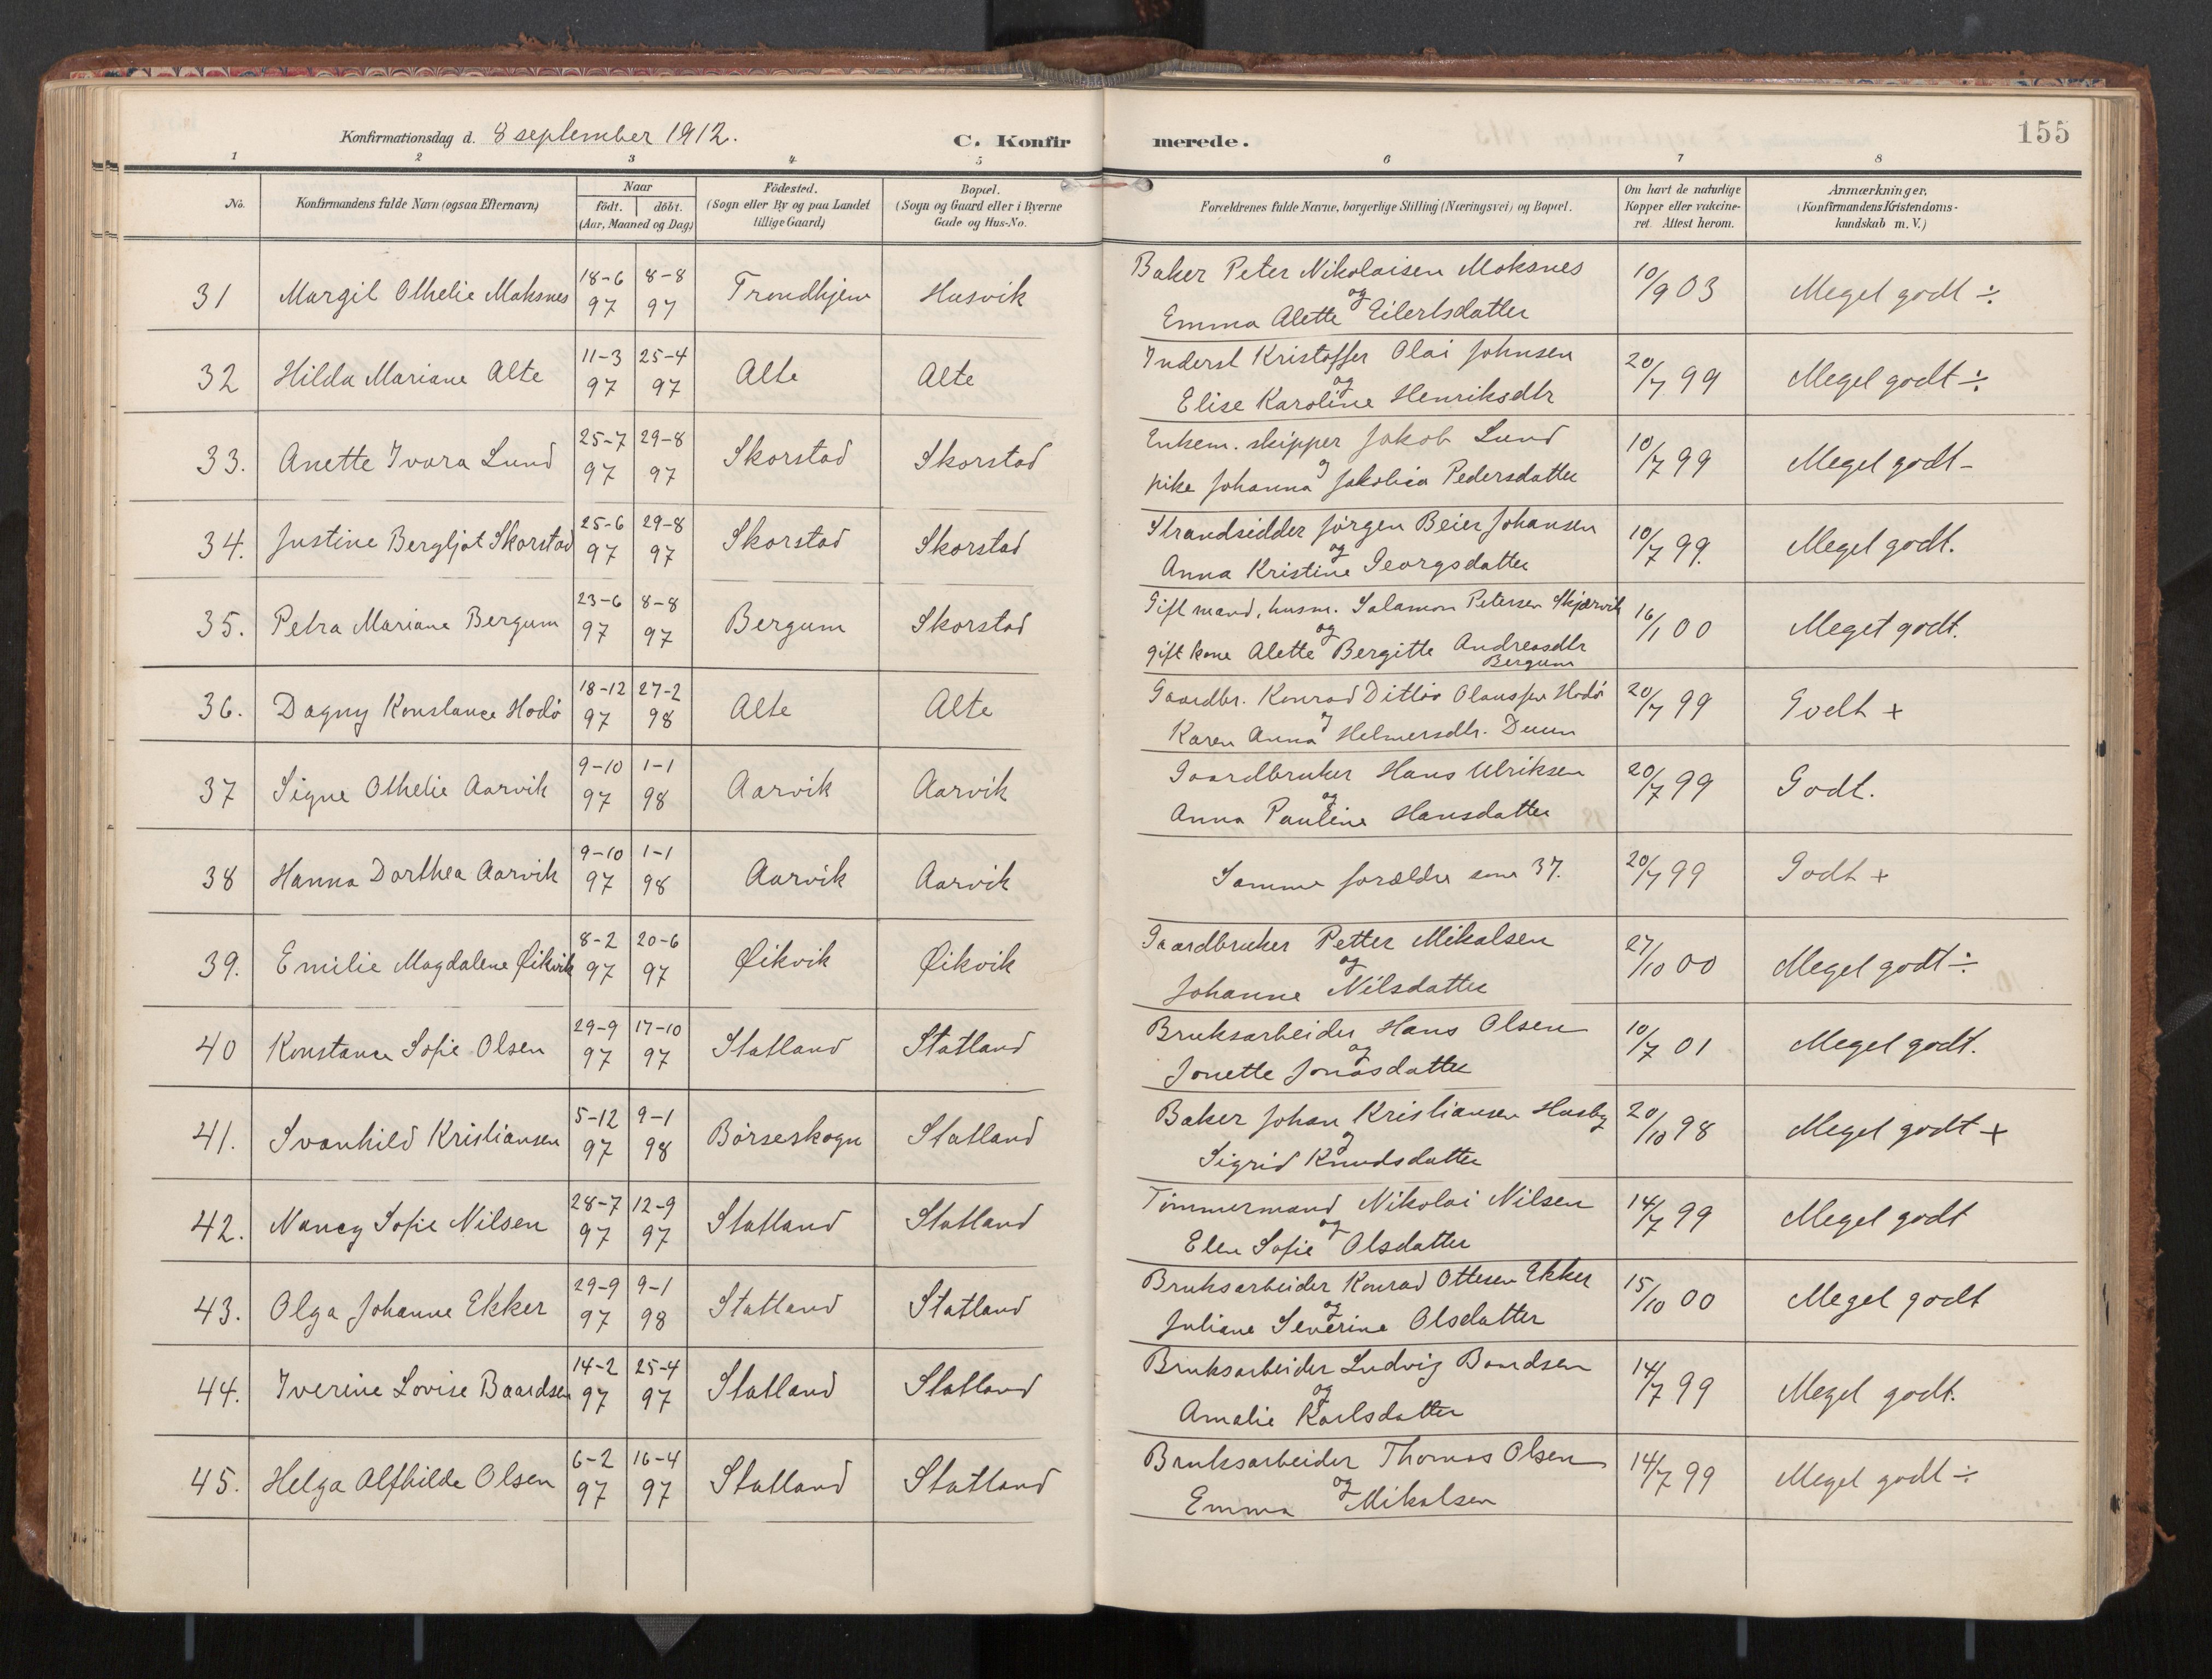 155
Konfirmationsdag d. 8 september 1912. C. Konfirmerede.
1 2 3 4 5 6 7 8
No. Konfirmandens fulde Navn (ogsaa Efternavn) Naar födt. döbt. (Aar, Maaned og Dag) Födested. (Sogn eller By og paa Landet tillige Gaard) Bopæl. (Sogn og Gaard eller i Byerne Gade og Hus-No. Forældrenes fulde Navne, borgerlige Stilling (Næringsvei) og Bopæl. Om havt de naturlige Kopper eller vakcineret. Attest herom. Anmærkninger. (Konfirmandens Kristendomskundskab m. V.)
31 Margit Othelie Moksnes 18-6 97 8-8 97 Trondhjem Husvik Baker Peter Nikolaisen Moksnes og Emma Alette Eilertsdatter 10/9 03 Meget godt ÷
32 Hilda Mariane Alte 11-3 97 25-4 97 Alte Alte Inderst Kristoffer Olai Johnsen og Elise Karoline Henriksdtr 20/7 99 Meget godt ÷
33. Anette Ivara Lund 25-7 97 29-8 97 Skorstad Skorstad Enkem. skipper Jakob Lund og pike Johanna Jakobia Pedersdatter 10/7 99 Meget godt -
34. Justine Bergljot Skorstad 25-6 97 29-8 97 Skorstad Skorstad Strandsidder Jörgen Beier Johansen og Anna Kristine Georgsdatter 10/7 99. Meget godt.
35. Petra Mariane Bergum 23-6 97 8-8 97 Bergum Skorstad Gift mand, husm. Salamon Petersen Skjærvik og gift kone Alette Bergitte Andreasdtr Bergum 16/1 00 Meget godt.
36. Dagny Konstance Hodö 18-12 97 27-2 98 Alte Alte Gaardbr. Konrad Ditlöv Olaussen Hodö og Karen Anna Helmersdtr. Duun 20/7 99 Godt +
37 Signe Othelie Aarvik 9-10 97 1-1 98 Aarvik Aarvik Gaardbruker Hans Ulriksen og Anna Pauline Hansdatter 20/7 99 Godt.
38 Hanna Dorthea Aarvik 9-10 97 1-1 98 Aarvik Aarvik Samme forældre som 37. 20/7 99 Godt +
39. Emilie Magdalene Øikvik 8-2 97 20-6 97 Øikvik Øikvik Gaardbruker Petter Mikalsen og Johanne Nilsdatter 27/10 00 Meget godt ÷
40 Konstance Sofie Olsen 29-9 97 17-10 97 Statland Statland Bruksarbeider Hans Olsen og Jonette Jonasdatter 10/7 01 Meget godt.
41. Svanhild Kristiansen 5-12 97 9-1 98 Börseskogn Statland Baker Johan Kristiansen Husby og Sigrid Knudsdatter 20/10 98 Meget godt +
42. Nancy Sofie Nilsen 28-7 97 12-9 97 Statland Statland Tömmermand Nikolai Nilsen og Elen Sofie Olsdatter 14/7 99 Meget godt
43. Olga Johanne Ekker 29-9 97 9-1 98 Statland Statland Bruksarbeider Konrad Ottesen Ekker og Juliane Severine Olsdatter 15/10 00 Meget godt
44. Iverine Lovise Baardsen 14-2 97 25-4 97 Statland Statland Bruksarbeider Ludvig Baardsen og Amalie Karlsdatter 14/7 99 Meget godt.
45. Helga Alfhilde Olsen 6-2 97 16-4 97 Statland Statland Bruksarbeider Thomas Olsen og Emma Mikalsen 14/7 99 Meget godt ÷